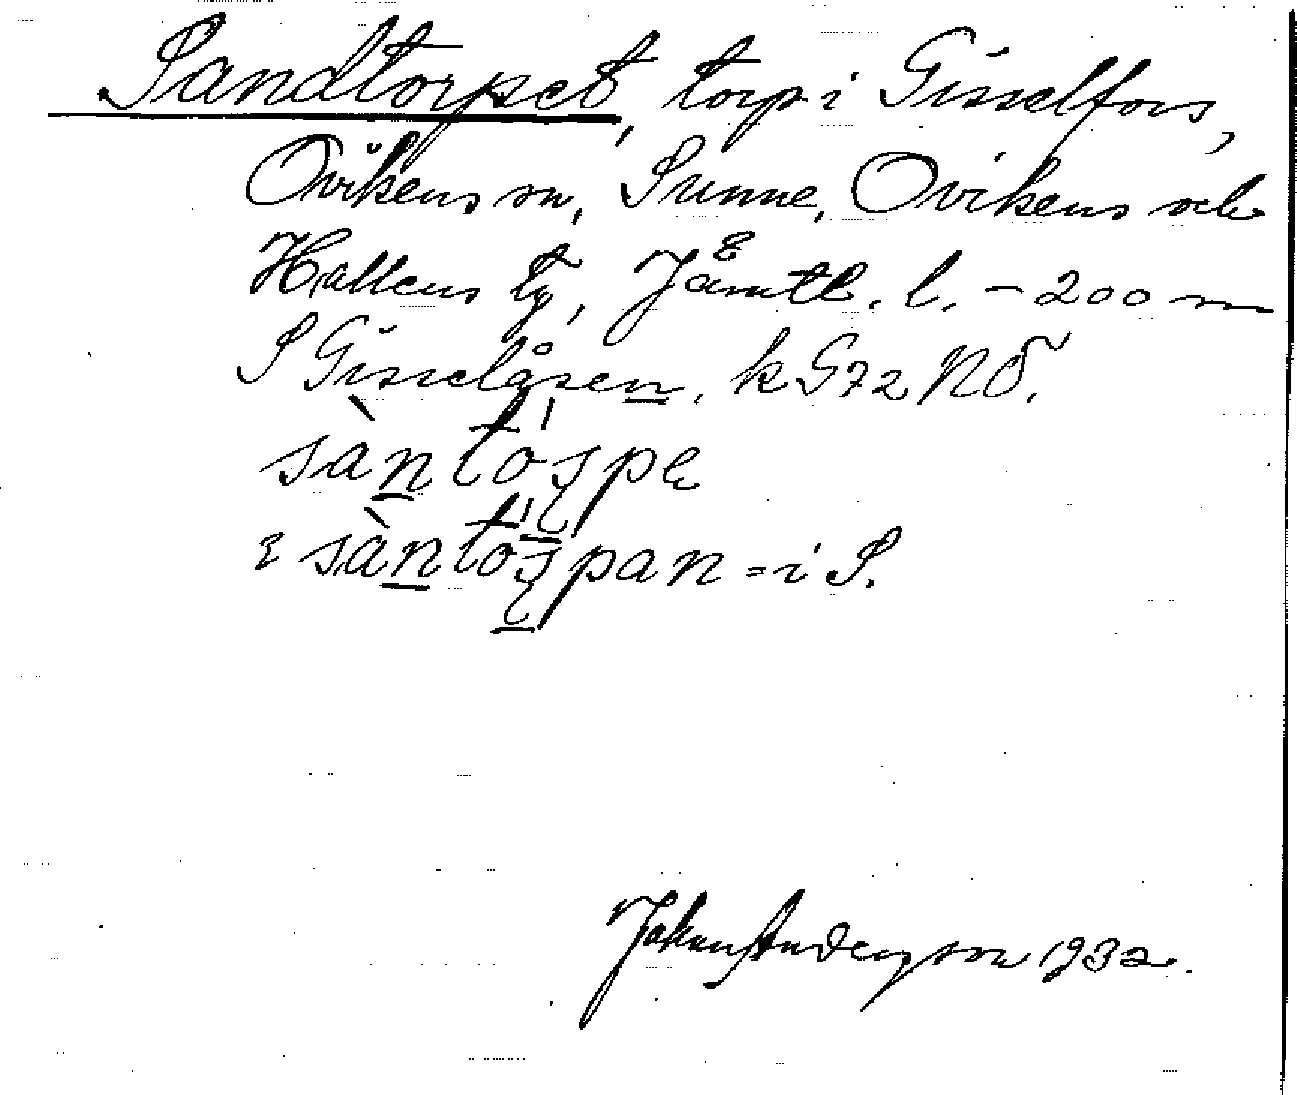 Sandtorpet, torp i Gisselfors,
Ovikens sn, Sunne, Ovikens och
Hallens tg, Jämtl. l. - 200 m
S Gisselåsen, k G72 NÖ.
sàntós̩pe
ɛ sàntós̩pan = i S.
Johan Anderson 1932.